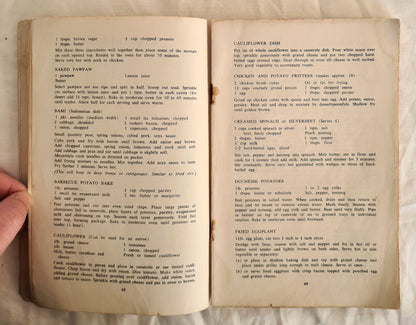 1 tbsps. brown sugar
1 tbsps. butter
½ cup chopped peanuts
Mix these three ingredients well together then place some of the mixture
on each spread top. Return to the oven for about 10 minutes.
Serve very hot with pork or chicken.
BAKED PAWPAW
1 pawpaw
Butter
Lemon juice
Select pawpaw not too ripe and split in half. Scoop out seed. Sprinkle
cut surface with lemon juice and put 1 tsp. butter in each cavity (for
desert add ½ tsp. honey). Bake in moderate oven for 30 to 40 minutes
until tender. Allow half for each serving and serve warm.
BAMI (Indonesian dish)
1 pkt. noodles (medium width)
¼ cabbage, shredded
1 onion, chopped
1 small tin tomatoes, chopped
2 rashers bacon, chopped
1 capsicum, chopped
Small quantity peas, spring onions, cubed pork, soya sauce
Cube pork and fry with bacon until brown. Add onion and brown.
Add chopped capsicum, spring onion, tomatoes and cook until soft.
Add cabbage and peas and stir until cabbage is tender.
Meanwhile cook noodles as directed on packet.
Add frying mixture to noodles. Mix together. Add soya sauce to taste.
Fry further 5 minutes. Serve hot.
(This will keep in deep freeze or refrigerator. Similar to fried rice.)
BARBECUE POTATO BAKE
1lb. potatoes
1 small tin evaporated milk
Salt and pepper
2 tbsps. chopped parsley
1 doz. martins or substitute
Peel potatoes and cut into even sized chips. Place large pieces of
aluminium foil in casserole, place layers of potatoes, parsley, evaporated
milk and shortening on top. Season each layer generously. Fold foil
over top, forming package. Bake in moderate oven until potatoes are
tender.
CAULIFLOWER (Can be used for an entree)
½lb. grated cheese
½lb. bacon
Milk, butter, cornflour and
cheese
1 tomatoes
1 onion chopped
Fresh or tinned cauliflower
Cook cauliflower in pieces and place in casserole or use tinned cauli-
flower. Chop bacon and fry with onion. Dice tomato. Make white sauce,
adding grated cheese. Before pouring over cauliflower, add onion, bacon
and tomato to sauce. Sprinkle with grated cheese and put in oven to brown.
48
CAULIFLOWER DISH
Put tin of whole cauliflower into a casserole dish. Pour white sauce over
top, sprinkle generously with grated cheese and put two chopped hard-
boiled eggs around edge. Heat through in oven till cheese is melting.
Very good vegetable to accompany roast.
CHICKEN AND POTATO FRITTERS (makes approx. 18)
2 chicken broth cubes
1½ cups coarsely grated potato
1 onion
1 egg
Oil or fat for frying
Flour
Chopped parsley
Crush chicken cubes with spoon and beat into egg. Add potato, onion,
parsley. Mix all ingredients and add enough flour to bind.
Heat oil and drop in mixture by dessertspoonfuls. Shallow fry
until golden brown.
CREAMED SPINACH or SILVERBEET (Serves 6)
2 cups cooked spinach or silver-
beet, finely chopped
2 tbsps. butter
1 cup milk
2 hard-boiled eggs, sliced
1 tsp. salt
Pinch nutmeg
2 tbsps. flour
½ tsp. pepper
Mix salt, pepper, and nutmeg into spinach. Melt butter, mix in flour and
cook for 1 minute then add milk. Add spinach and simmer for 5 minutes
Stir constantly. Serve hot garnished with wedges or slices of hard-
boiled egg.
DUCHESSE POTATOES
1lb. potatoes
2 ozs. butter or margarine
1 or 2 egg yolks
Salt, pepper, nutmeg
Boil potatoes in salted water. When cooked, drain and then return to
heat and let steam to remove excess water. Mash finely. Season with
pepper and nutmeg, add egg milk and butter. Beat until very fluffy. Pipe
as border on top of casserole or on to greased tray in individual
rosettes. Bake in moderate oven until browned.
FRIED EGGPLANT
½lb. egg plant, cut into ¼ inch to ½ inch slices
Dredge with flour, season with salt and pepper and fry in hot oil or
butter until tender and lightly brown on both sides. Serve hot as side
vegetable or separately:
(a) or place in shallow baking dish and top with grated cheese and
place under griller long enough to melt cheese. Serve at once.
(b) or serve fried eggplant with crisp bacon topped with poached egg
and grated cheese.
49